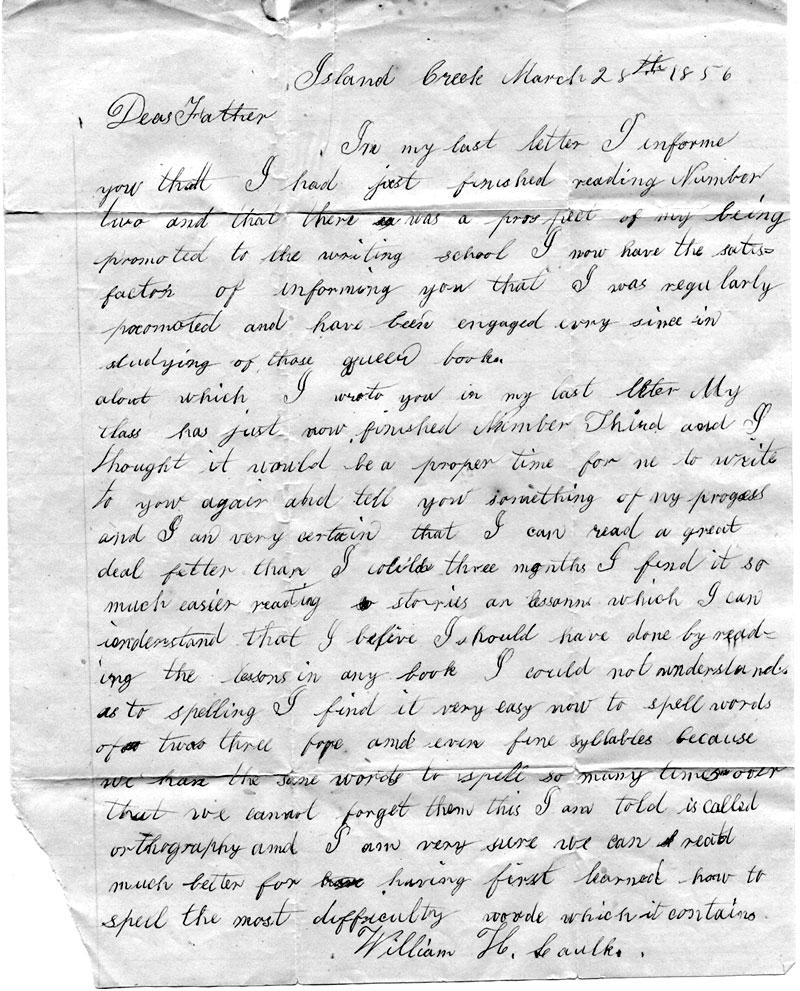 Island Creek March 28th 1856
Dear Father
In my last letter I informe
you that I had just finished reading Number
two and that there was a prospect of my being
promoted to the writing school I now have the satis=
facton of informing you that I was regularly
pocomoted and have been engaged evry since in
studying of those queer books
about which I wrote you in my last letter My
class has just now finished Number Third and I
thought it would be a proper time for me to write
to you again and tell you something of my progess
and I am very certain that I can read a great
deal fetter than I could three months I find it so
much easier reading stories an lessanns which I can
understand that I belive I should have done by read=
ing the lessons in any book I could not understand
as to spelling I find it very easy now to spell words
of two three fore and even fine syllables because
we have the same words to spell so many times over
that we cannot forget them this I am told is called
orthography and I am very sure we can read
much better for having first learned how to
spell the most difficulty words which it contains
William H. Caulk.